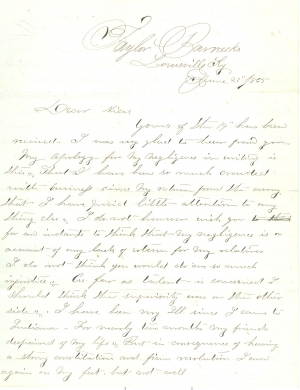 Taylor Barracks
Louisville Ky
June 21st /865
Dear Niece
Yours of the 19th has been
received. I was very glad to hear from you.
My apology for my negligence in writing is
this, that I have been so much crowded
with business since my return from the army
that I have paid little attention to any
thing else. I do not however wish you to think
for an instant to think that my negligence is on
account of my lack of esteem for my relatives
I do not think you would do me so much
injustice. As far as talent is concerned I
should think the superiority was on the other
side. I have been very Ill since I came to
Indiana. For nearly two months my friends
despaired of my life, But in consequence of having
a strong constitution and firm resolution I am
again on my feet but not well